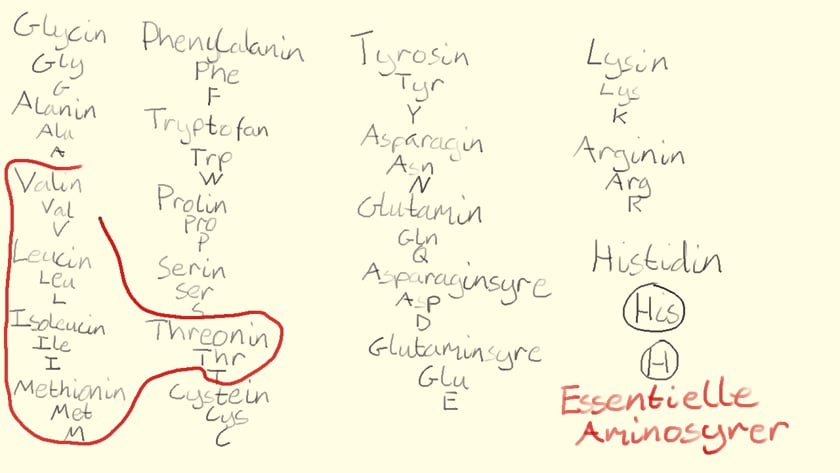 Glycin
Gly
G
Alanin
Ala
A
Valin
Val
V
Leucin
Leu
L
Isoleucin
Ile
I
Methionin
Met
M
Phenylalanin
Phe
F
Tryptofan
Trp
W
Prolin
Pro
P
Serin
Ser
S
Threonin
Thr
T
Cystein
Cys
C
Tyrosin
Tyr
Y
Asparagin
Asn
N
Glutamin
Gln
Q
Asparaginsyre
Asp
D
Glutaminsyre
Glu
E
Lysin
Lys
K
Arginin
Arg
R
Histidin
His
H
Essentielle
Aminosyrer